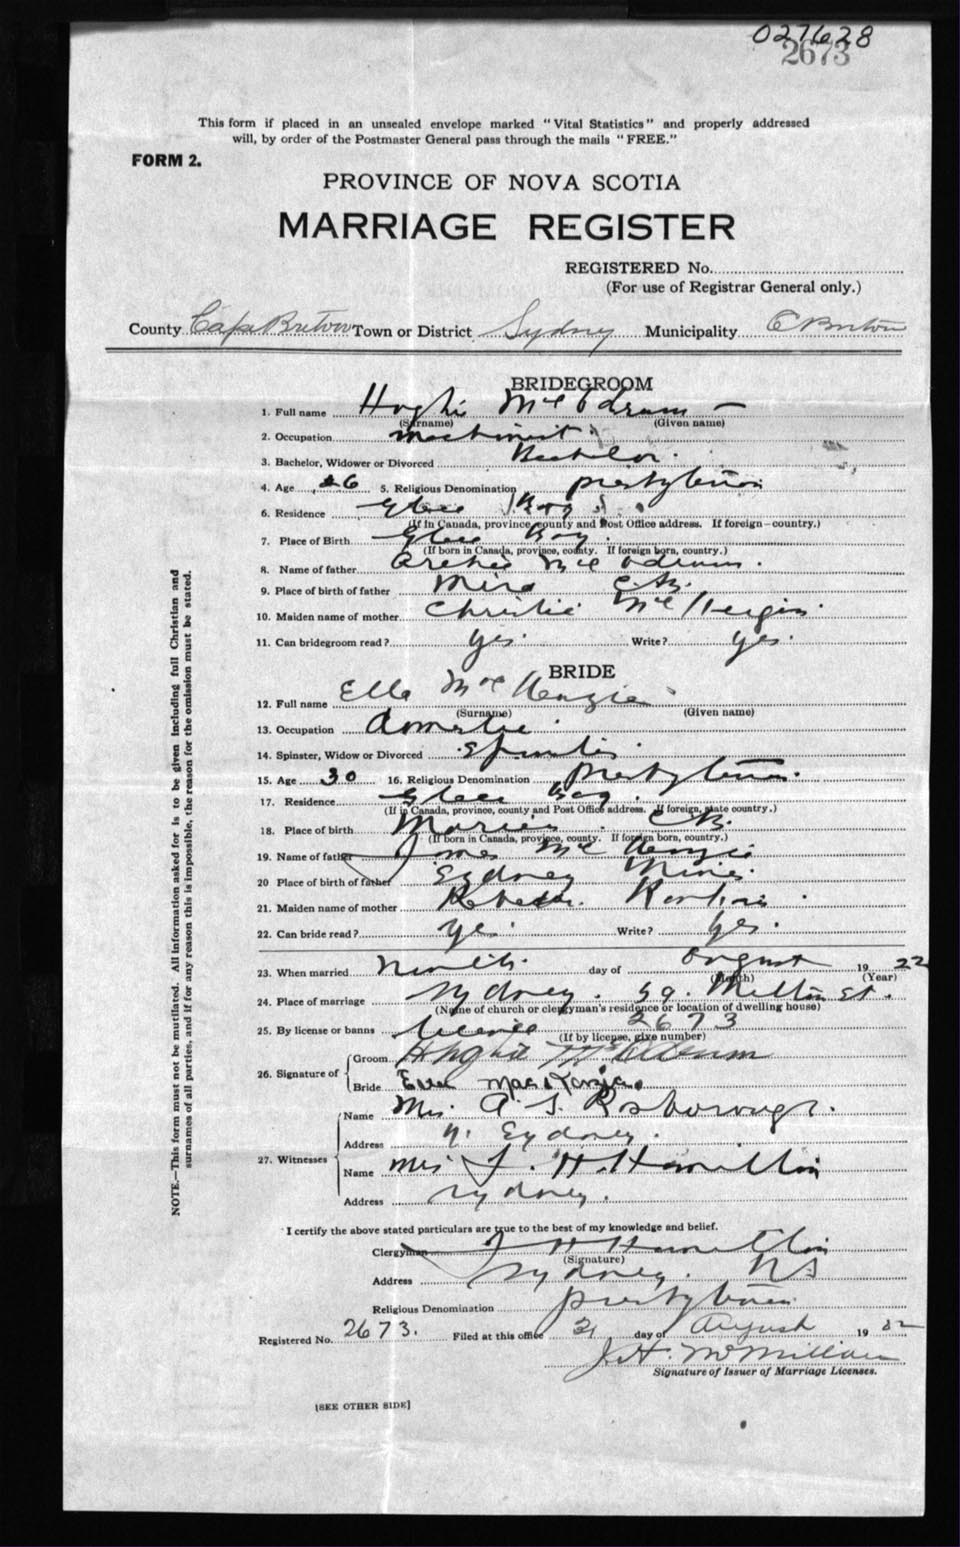 027628
2673
This form if placed in an unsealed envelope marked "Vital Statistics" and properly addressed
will, by order of the Postmaster General pass through the mails "FREE."
FORM 2.
PROVINCE OF NOVA SCOTIA
MARRIAGE REGISTER
REGISTERED No.
(For use of Registrar General only.)
County Cape Breton Town or District Sydney Municipality C Breton
BRIDEGROOM
1. Full name Hughie Mc
(Surname) (Given name)
2. Occupation machinist
3. Bachelor, Widower or Divorced Bachelor.
4. Age 26 5. Religious Denominatlon presbyterian
6. Residence Glace Bay
(If in Canada, province, county and Post Office address. If foreign—country.)
7. Place of Birth Glace Bay.
(If born in Canada, province, county. If foreign born, country.)
8. Name of father Archie Mc
9. Place of birth of father Mira C.B.
10. Maiden name of mother Christie Mc
11. Can bridegroom read? yes. Write? yes.
BRIDE
12. Full name Ella McKenzie
(Surname) (Given name)
13. Occupation domestic
14. Spinster, Widow or Divorced Spinster.
15. Age 30 16. Religious Denomination presbyterian.
17. Residence Glace Bay.
(If in Canada, province, county and Post Office address. If foreign, state country.)
18. Place of birth C.B.
(If born in Canada, province, county. If foreign born, country.)
19. Name of father James McKenzie
20 Place of birth of father Sydney Mines.
21. Maiden name of mother Rebecca
22. Can bride read? yes. Write? yes.
23. When married day of August 1922
(Month) (Year)
24. Place of marriage Sydney. 59. Milton St.
(Name of church or clergyman's residence or location of dwelling house)
25. By license or banns license 2673
(If by license, give number)
26. Signature of Groom Hughie
Bride MacKenzie.
27. Witnesses
Name Mrs. A. S. Rosborough.
Address N. Sydney.
Name Mrs J. H. Hamilton
Address Sydney.
I certify the above stated particulars are true to the best of my knowledge and belief.
Clergyman J H Hamilton
(Signature)
Address Sydney. NS
Religious Denomination presbyterian
Registered No. 2673. Filed at this office 21 day of August 1922
J.H. McMillan
Signature of Issuer of Marriage Licenses.
[SEE OTHER SIDE]
NOTE.—This form must not be mutilated. All information asked for is to be given including full Christian and
surnames of all parties, and if for any reason this is impossible, the reason for the omission must be stated.